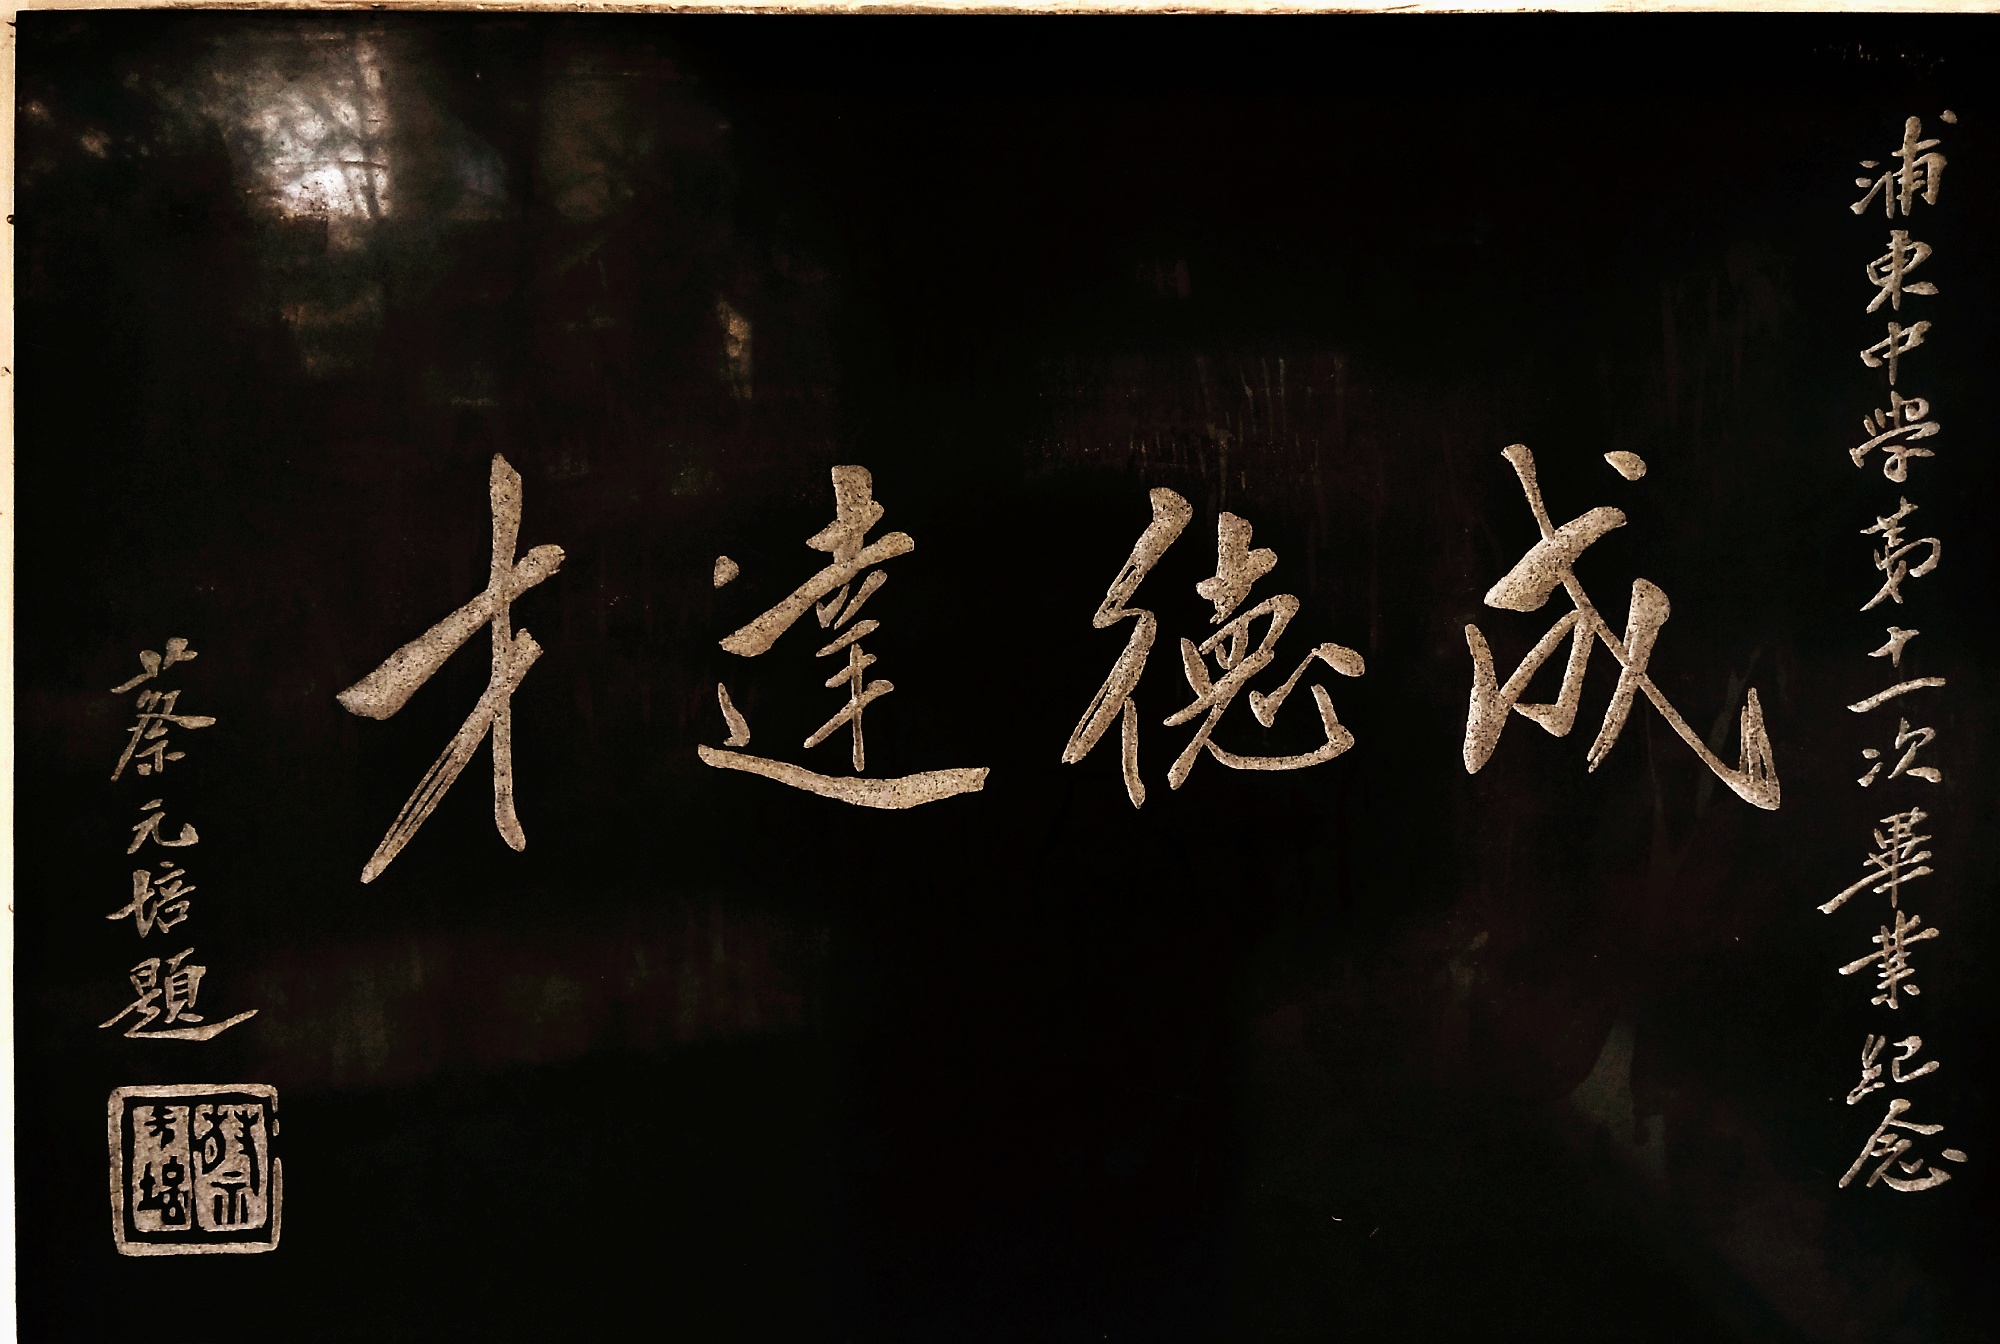 浦東中學第十一次畢業紀念
成德達才
蔡元培題
蔡元培